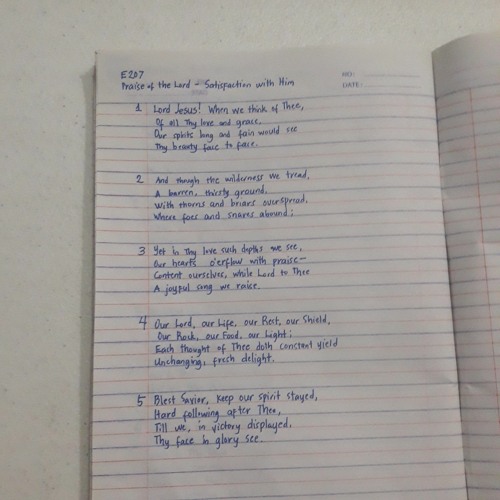 E207
Praise of the Lord - Satisfaction with Him
NO:
DATE:
1 Lord Jesus! When we think of Thee,
Of all Thy love and grace,
Our spirits long and fain would see
Thy beauty face to face.
2 And though the wilderness we tread,
A barren, thirsty ground,
With thorns and briars overspread,
Where foes and snares abound;
3 Yet in Thy love such depths we see,
Our hearts o'erflow with praise-
Content ourselves, while Lord to Thee
A joyful song we raise.
4 Our Lord, our Life, our Rest, our Shield,
Our Rock, our Food, our Light;
Each thought of Thee doth constant yield
Unchanging, fresh delight.
5 Blest Savior, keep our spirit stayed,
Hard following after Thee,
Till we, in victory displayed,
Thy face in glory see.